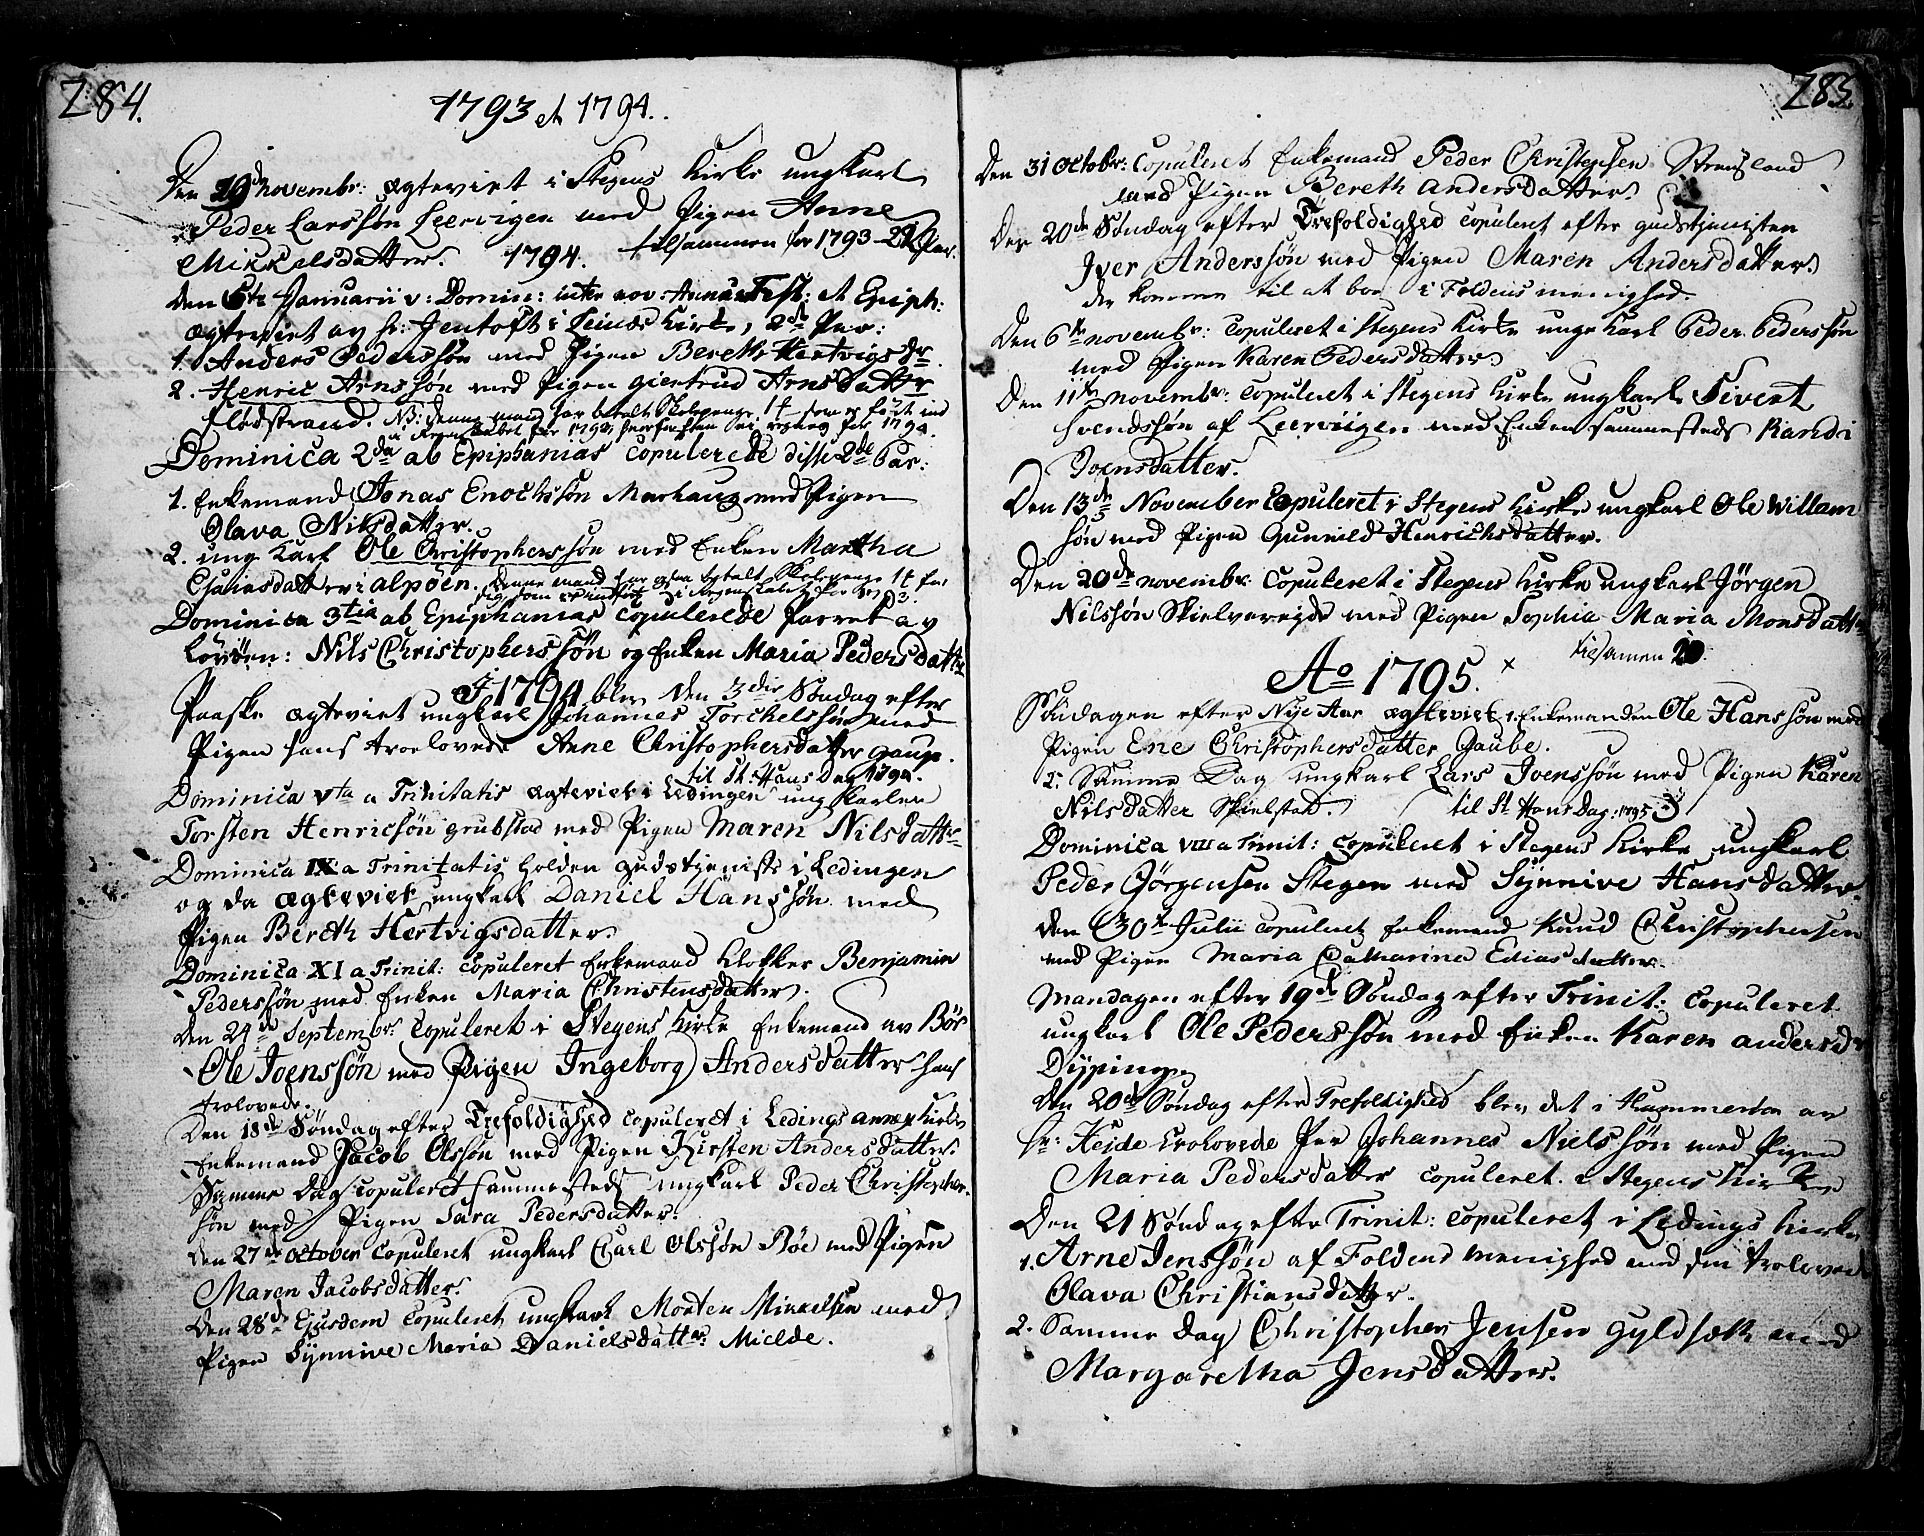 284.
1793 et 1794.
Den 29d novembr: ægteviet i Stegens Kirke ungkarl
Peder Larssøn Leervigen med Pigen Anne
Mikkelsdatter. 1794. tilsammen for 1793 - 22 Par.
den 5te Januarii v: Domin: inter nov: Annum Fest: et Epiph:
ægteviet av hr: Jentoft i Leinæs Kirke, 2de Par:
1. Anders Pederssøn med Pigen Bereth Hertvigsdr.
2. Henric Arnssøn med Pigen Giertrud Arnsdatter
Flodstrand. NB: denne mand har betalt Skolepenge 1 t som er ført ind
i Regnskabet for 1793, for 1794.
Dominica 2da ab Epiphanias copulerede disse 2de Par:
1. Enkemand Jonas Enochssøn Marhaug med Pigen
Olava Nilsdatter.
2. ung Karl Ole Christopherssøn med Enken Martha
Eliasdatter: alpøen. denne mand har ogsaa betalt Skolepenge 1 t for
sig, som er indført i Regnskabet for 1793.
Dominica 3tia ab Epiphanias copulerede Parret av
Løvøen: Nils Christopherssøn og Enken Maria Pedersdatter
I 1794 blev den 3die Søndag efter
Paaske ægteviet ungkarl Johannes Torchelssøn med
Pigen hans troelovede Anne Christophersdatter Gaup.
til St. Hans Dag 1794.
Dominica Vta a Trinitatis ægteviet i Ledingen ungkarlen
Torsten Henricsøn Grubstad med Pigen Maren Nilsdatter
Dominica IX a Trinitatis holden gudstjeniste i Ledingen
og da ægteviet ungkarl Daniel Hanssøn med
Pigen Bereth Hertvigsdatter.
Dominica XI a Trinit: copuleret Enkemand Klokker Benjamin
Pederssøn med Enken Maria Christensdatter.
den 24de Septembr. copuleret i Stegens Kirke Enkemand av Bøe
Ole Joenssøn med Pigen Ingeborg Andersdatter hans
trolovede.
Den 18de Søndag efter Trefoldighed copuleret i Ledings annex Kirke
Enkemand Jacob Olssøn med Pigen Kirsten Andersdatter.
Samme Dag copuleret sammesteds ungkarl Peder Christopher-
søn med Pigen Sara Pedersdatter.
den 27de october copuleret ungkarl Carl Olssøn Bøe med Pigen
Maren Jacobsdatter.
den 28de Ejusdem copuleret ungkarl Morten Mikkelsen med
Pigen Synnive Maria Danielsdatter: Mielde.
285.
Den 31 octobr: copuleret Enkemand Peder Christensen Strengland
med Pigen Bereth Andersdatter.
Den 20de Søndag efter Trefoldighed copuleret efter gudstjenisten
Iver Anderssøn med Pigen Maren Andersdatter.
de komme til at boe i Foldens menighed.
Den 6te novembr: copuleret i Stegens Kirke unge Karl Peder Pederssøn
med Pigen Karen Pedersdatter
Den 11te novembr: copuleret i Stegens Kirke ungkarl Sivert
Svendssøn af Leerviigen med Enken sammesteds Randi
Joensdatter.
Den 13de November copuleret i Stegens Kirke ungkarl Ole Willam
søn med Pigen Gunnild Henrichsdatter.
Den 20de novembr: copuleret i Stegens Kirke ungkarl Jørgen
Nilssøn Skielvareide med Pigen Sophia Maria Monsdatter
tilsamen 20.
Ao 1795. x
Søndagen efter Nyt Aar ægteviet 1. Enkemanden Ole Hanssøn med
Pigen Ene Christophersdatter Gaube.
2. Samme Dag ungkarl Lars Joenssøn med Pigen Karen
Nilsdatter Skielstad. til St Hans Dag: 1795
Dominica VIII a Trinit: copuleret i Stegens Kirke ungkarl
Peder Jørgensen Stegen med Synnive Hansdatter.
den 30t Julii copuleret Enkemand Knud Christophersen
med Pigen Maria Catharina Ediasdatter.
Mandagen efter 19de Søndag efter Trinit: copuleret
ungkarl Ole Pederssøn med Enken Karen andersdr
Dyping.
den 20de Søndag efter Trefoldighed blev det i Hammerøe av
Hr: Heide trolovede Par Johannes Nielssøn med Pigen
Maria Pedersdatter copuleret i Stegens Kirke
Den 21 Søndag efter Trinit: copuleret i Ledings Kirke
1. Arne Jenssøn af Foldens menighed med sin trolovede
Olava Christiansdatter.
2. Samme dag Christopher Jensen Gyldsæth med
Margaretha Jensdatter.